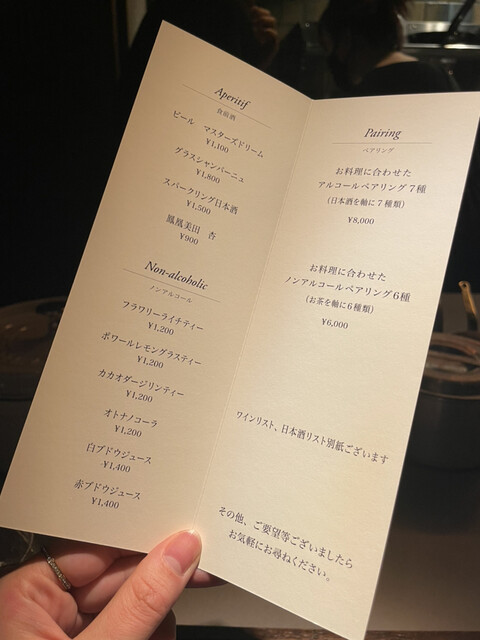 Aperitif
食前酒
ビール　マスターズドリーム
¥1,100
グラスシャンパーニュ
¥1,800
スパークリング日本酒
¥1,500
鳳凰美田　杏
¥900
Non-alcoholic
ノンアルコール
フラワリーライチティー
¥1,200
ポワールレモングラスティー
¥1,200
カカオダージリンティー
¥1,200
オトナノコーラ
¥1,200
白ブドウジュース
¥1,400
赤ブドウジュース
¥1,400
Pairing
ペアリング
お料理に合わせた
アルコールペアリング7種
(日本酒を軸に7種類)
¥8,000
お料理に合わせた
ノンアルコールペアリング6種
(お茶を軸に6種類)
¥6,000
ワインリスト、日本酒リスト別紙ございます
その他、ご要望等ございましたら
お気軽にお尋ねください。